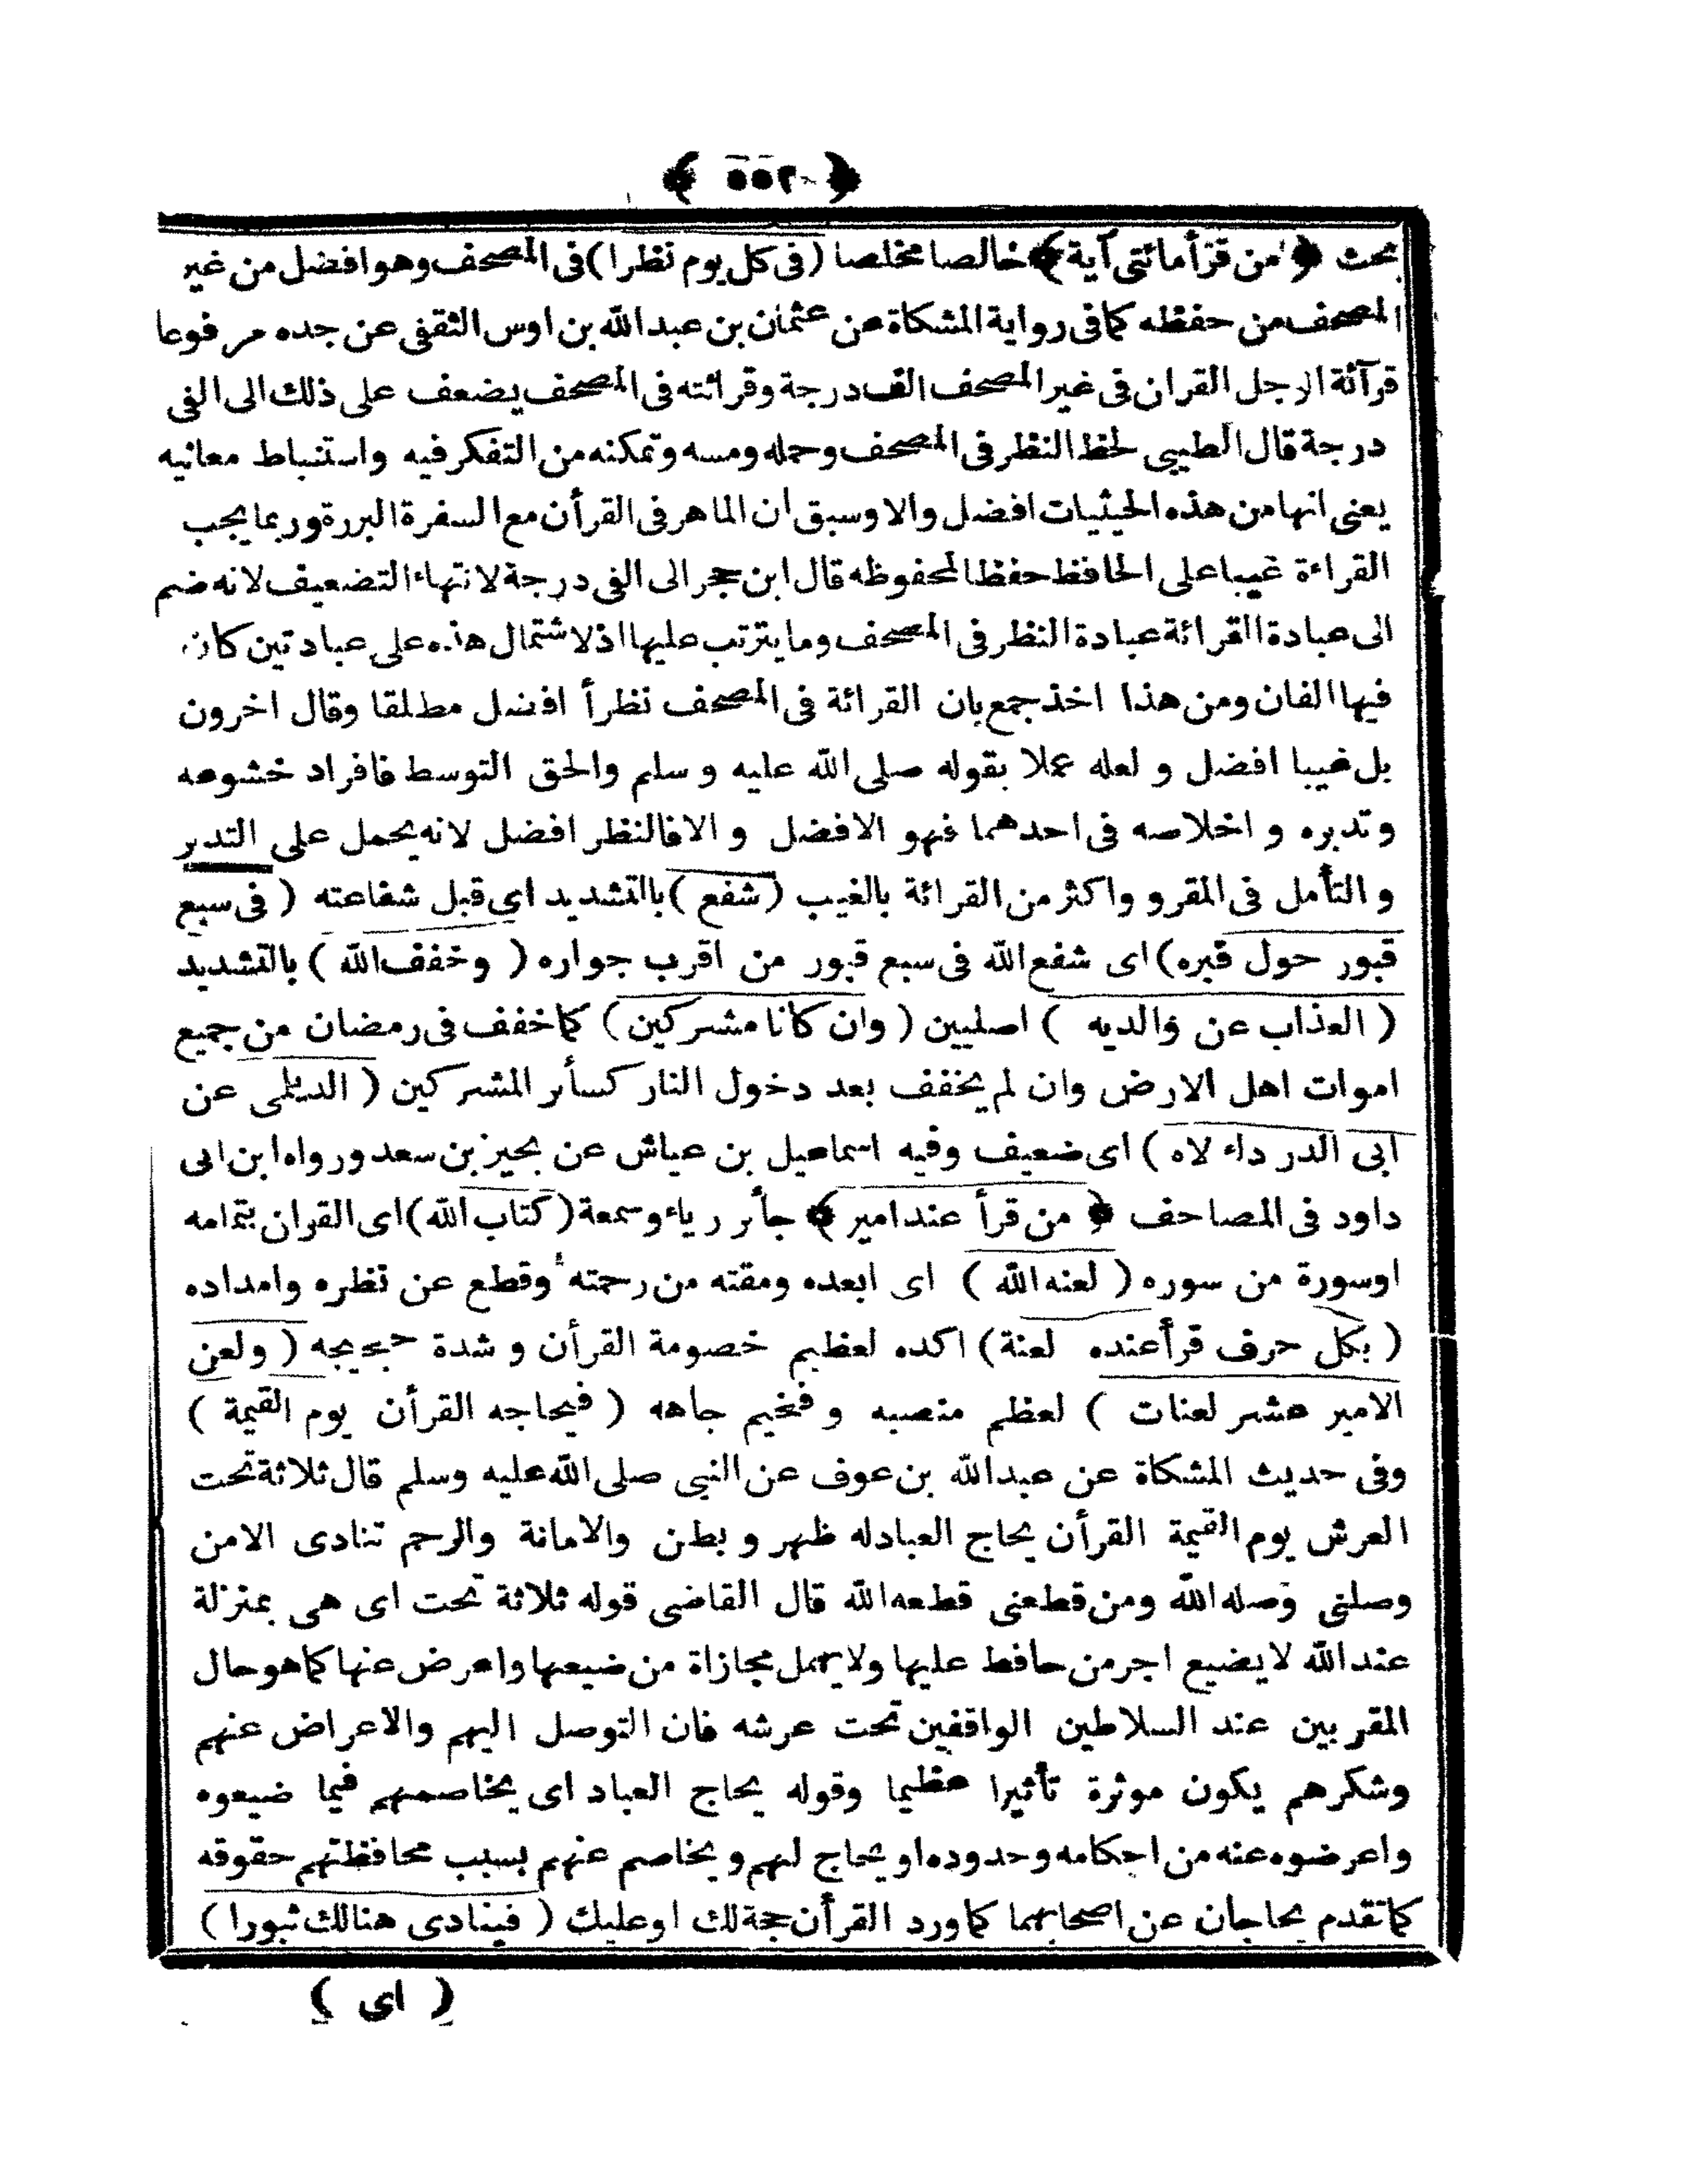 ﴿ ٥٥٢ ﴾
بحث ﴿ من قرأ مائتى آية ﴾ خالصا مخلصا (فى كل يوم نظرا) فى المصحف وهو افضل من غير
المصحف من حفظه كما فى رواية المشكاة عن عثمان بن عبد الله بن اوس الثقفى عن جده مرفوعا
قرآئة الرجل القران فى غير المصحف الف درجة وقرائته فى المصحف يضعف على ذلك الى الفى
درجة قال الطيبى لحظ النظر فى المصحف وحمله ومسه وتمكنه من التفكر فيه واستنباط معانيه
يعنى انها من هذه الحيثيات افضل والا وسبق ان الماهر فى القرأن مع السفرة البررة وربما يجب
القراءة غيبا على الحافظ حفظا لمحفوظه قال ابن حجر الى الفى درجة لانتهاء التضعيف لانه ضم
الى عبادة القرائة عبادة النظر فى المصحف وما يترتب عليها اذ لاشتمال هذه على عبادتين كان
فيها الفان ومن هذا اخذ جمع بان القرائة فى المصحف نظرأ افضل مطلقا وقال اخرون
بل غيبا افضل و لعله عملا بقوله صلى الله عليه و سلم والحق التوسط فافراد خشوعه
وتدبره و اخلاصه فى احدهما فهو الافضل و الا فالنظر افضل لانه يحمل على التدبر
و التأمل فى المقرو واكثر من القرائة بالغيب (شفع) بالتشديد اى قبل شفاعته ( فى سبع
قبور حول قبره) اى شفع الله فى سبع قبور من اقرب جواره ( وخفف الله ) بالتشديد
( العذاب عن والديه ) اصليين ( وان كانا مشركين ) كما خفف فى رمضان من جميع
اموات اهل الارض وان لم يخفف بعد دخول النار كسأر المشركين ( الديلمى عن
ابى الدرداء لاه ) اى ضعيف وفيه اسماعيل بن عياش عن بحير بن سعد ورواه ابن ابى
داود فى المصاحف ﴿ من قرأ عند امير ﴾ جأر رياء وسمعة (كتاب الله) اى القران بتمامه
اوسورة من سوره ( لعنه الله ) اى ابعده ومقته من رحمته وقطع عن نظره وامداده
( بكل حرف قرأ عنده لعنة) اكده لعظيم خصومة القرأن و شدة حجيجه ( ولعن
الامير عشر لعنات ) لعظم منصبه و فخيم جاهه ( فيحاجه القرأن يوم القيمة )
وفى حديث المشكاة عن عبدالله بن عوف عن النبى صلى الله عليه وسلم قال ثلاثة تحت
العرش يوم القيمة القرأن يحاج العباد له ظهر و بطن والامانة والرحم تنادى الامن
وصلنى وصله الله ومن قطعنى قطعه الله قال القاضى قوله ثلاثة تحت اى هى بمنزلة
عند الله لا يضيع اجر من حافظ عليها ولا يهمل مجازاة من ضيعها واعرض عنها كما هو حال
المقربين عند السلاطين الواقفين تحت عرشه فان التوصل اليهم والاعراض عنهم
وشكرهم يكون موثرة تأثيرا عظيما وقوله يحاج العباد اى يخاصمهم فيما ضيعوه
واعرضوه عنه من احكامه وحدوده او يحاج لهم و يخاصم عنهم بسبب محافظتهم حقوقه
كما تقدم يحاجان عن اصحابهما كما ورد القرأن حجة لك او عليك ( فينادى هنالك ثبورا )
( اى )